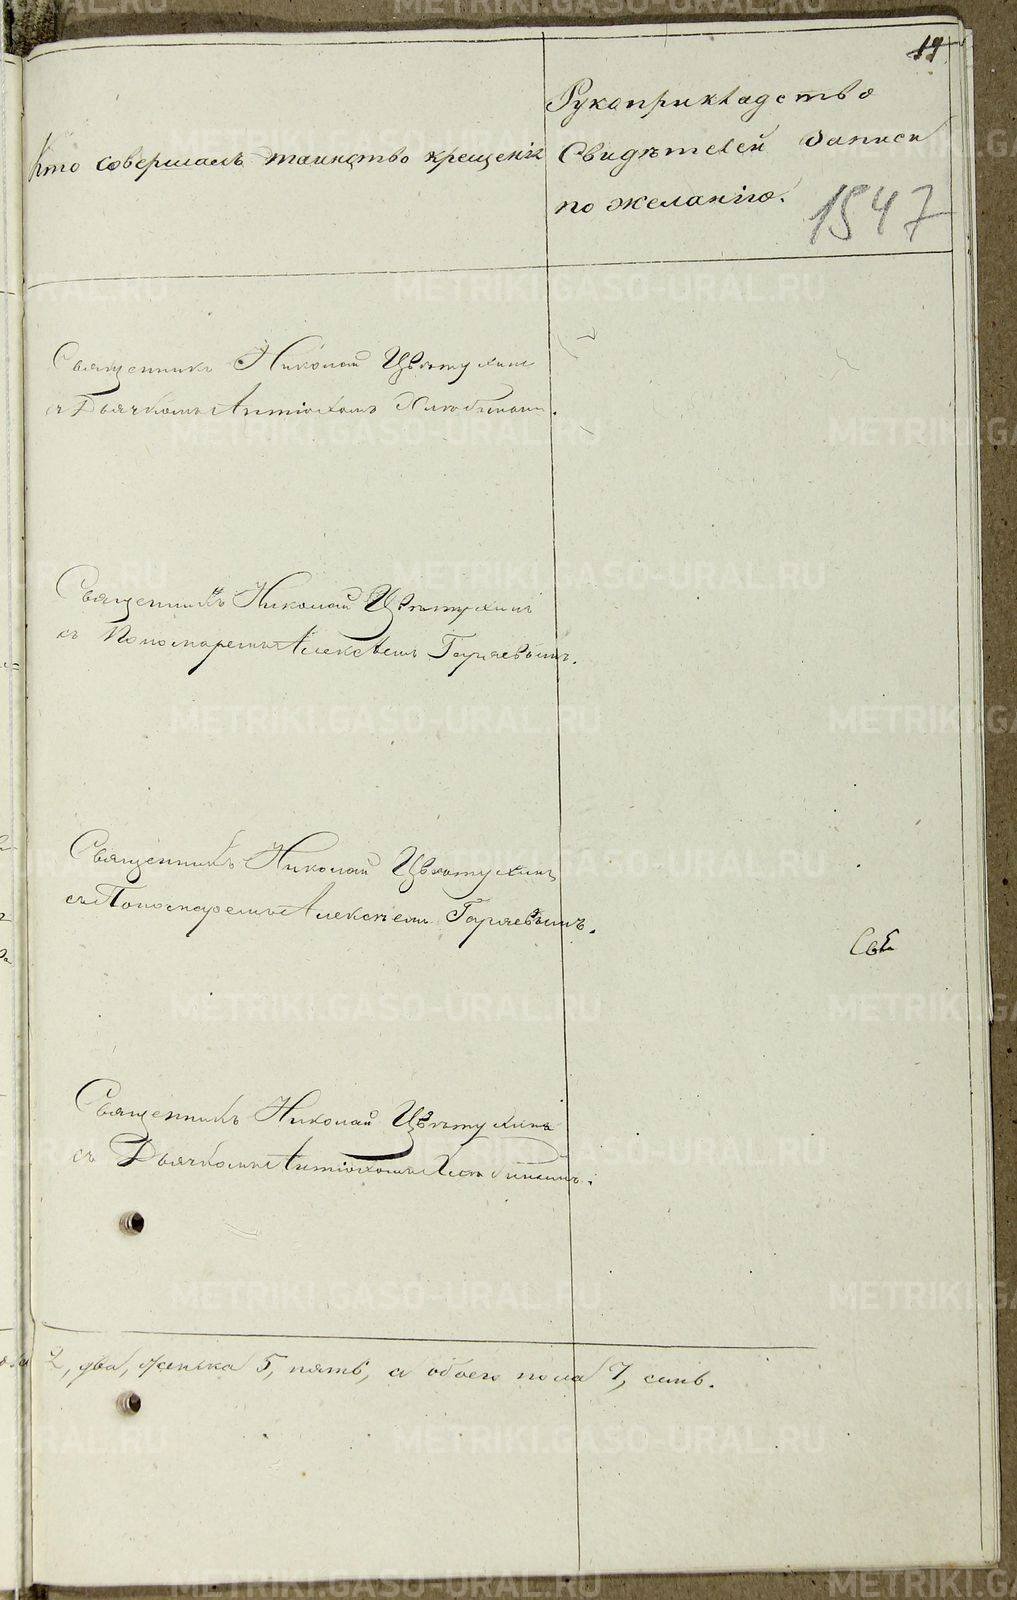 19
Кто совершалъ таинство крещенія
Рукоприкладство
Свидѣтелей записи
по желанію.
1547
Священникъ Николай Цвѣтухинъ
съ Дьячкомъ Антіохомъ
Священникъ Николай Цвѣтухинъ
съ Пономаремъ Алексѣемъ Гаряевымъ.
Священникъ Николай Цвѣтухинъ
съ Пономаремъ Алексѣемъ Гаряевымъ.
Священникъ Николай Цвѣтухинъ
съ Дьячкомъ Антіохомъ
2, два, женска 5, пять, а обоего пола 7, семь.
METRIKI.GASO-URAL.RU